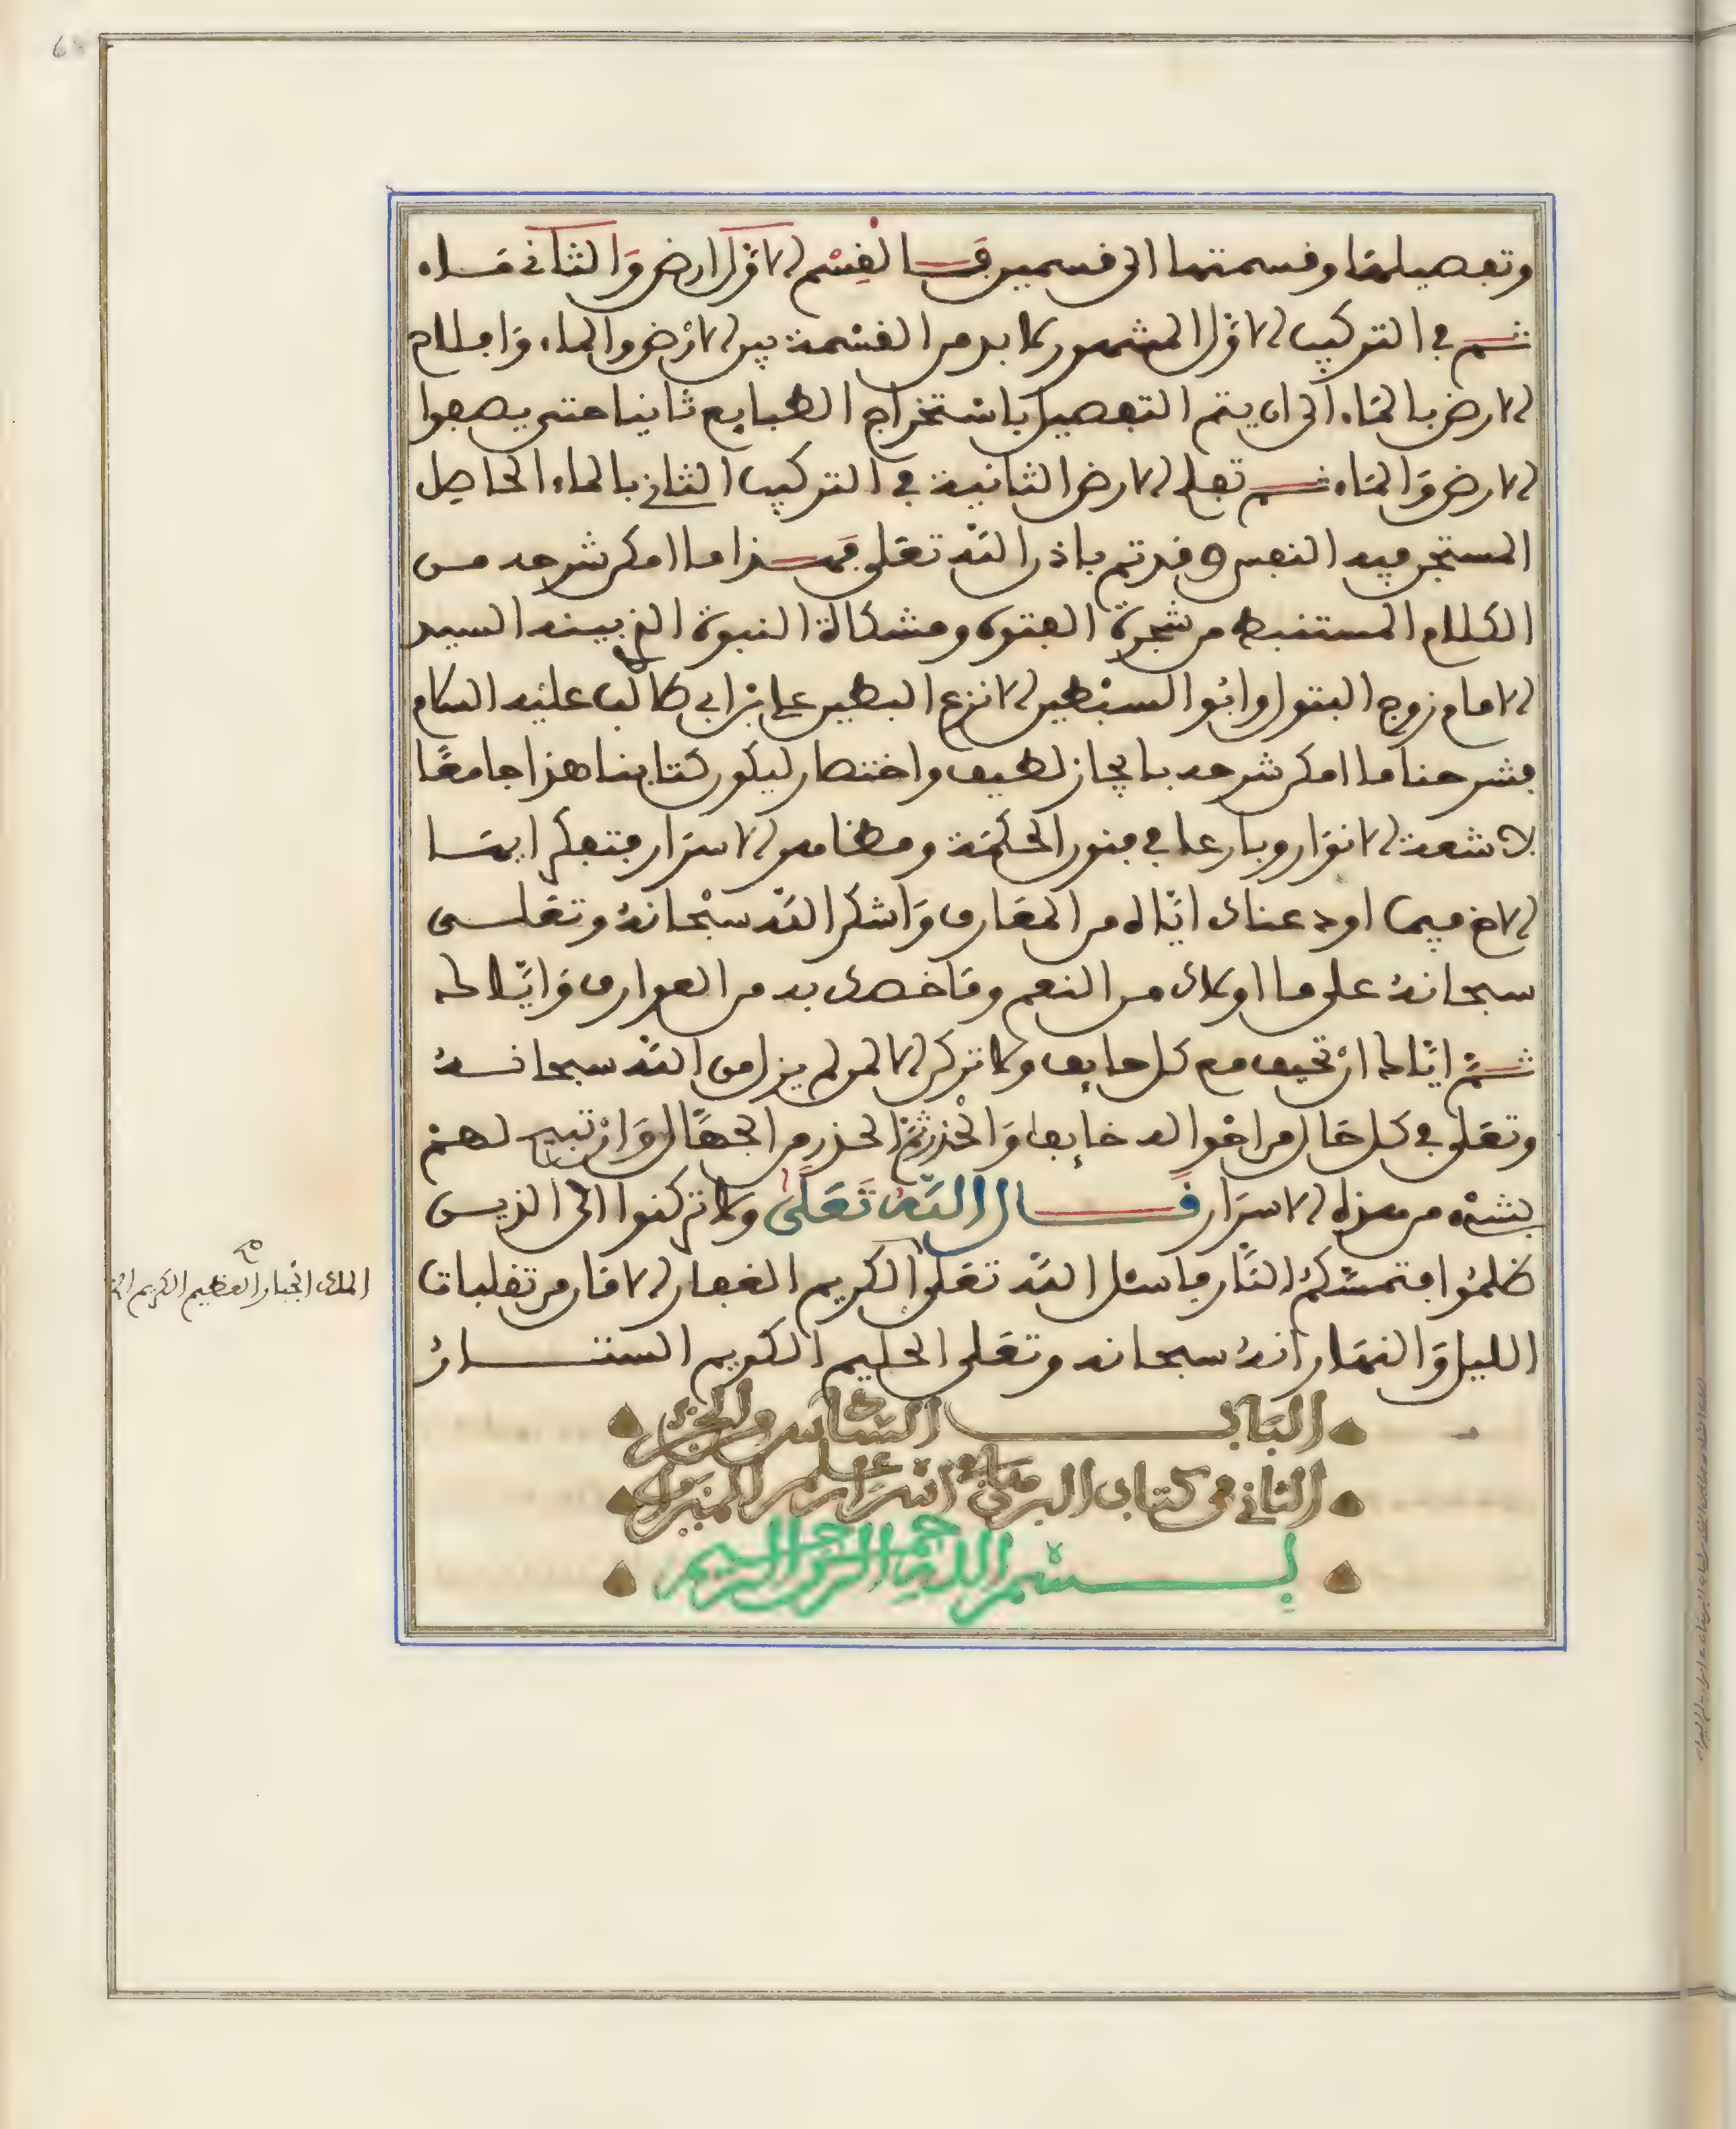 وتفصيلها وقسمتها الى قسمين فالقسم الاول ارض والثاني ماء
ثم في التركيب الاول المشهور لا بد من القسمة بين الارض والماء واطلام
الارض بالماء الى ان يتم التفصيل باستخراج الطبايع ثانيا حتى يصفوا
الارض والماء ثم تعلم الارض الثانية في التركيب الثاني بالماء الحاصل
المستجن فيه النفس وقد تم باذن الله تعلى فهذا ما امكن شرحه من
الكلام المستنبط من شجرة الفتوه ومشكاة النبوة الذي بينه السيد
الامام زوج البتول وابو السبطين الانزع البطين علي بن ابي طالب عليه السلام
فشرحنا ما امكن شرحه بايجاز لطيف واختصار ليكون كتابنا هذا جامعا
لاشعة الانوار وبارعا في فنون الحكمة ومظاهر الاسرار فتفكر ايها
الاخ فيما اودعناك اياه من المعارف واشكر الله سبحانه وتعلى
سبحانه على ما اولاك من النعم وما خصك به من العوارف واياك
ثم اياك ان تحيف مع كل حايف ولا تركن الا لمن لم يزل من الله سبحانه
وتعلى في كل حال من احواله خايفا والحذر ثم الحذر من الجهال وان تبين لهم
بشيء من هذه الاسرار قال الله تعلى ولا تركنوا الى الذين
ظلموا فتمسكم النار فاسئل الله تعلى الكريم الغفار الامان من تقلبات
الليل والنهار انه سبحانه وتعلى الحليم الكريم الستار
الملك الجبار العظيم الكريم صح
الباب السادس من الجزء
الثاني من كتاب البرهان في اسرار علم الميزان
بسم الله الرحمن الرحيم